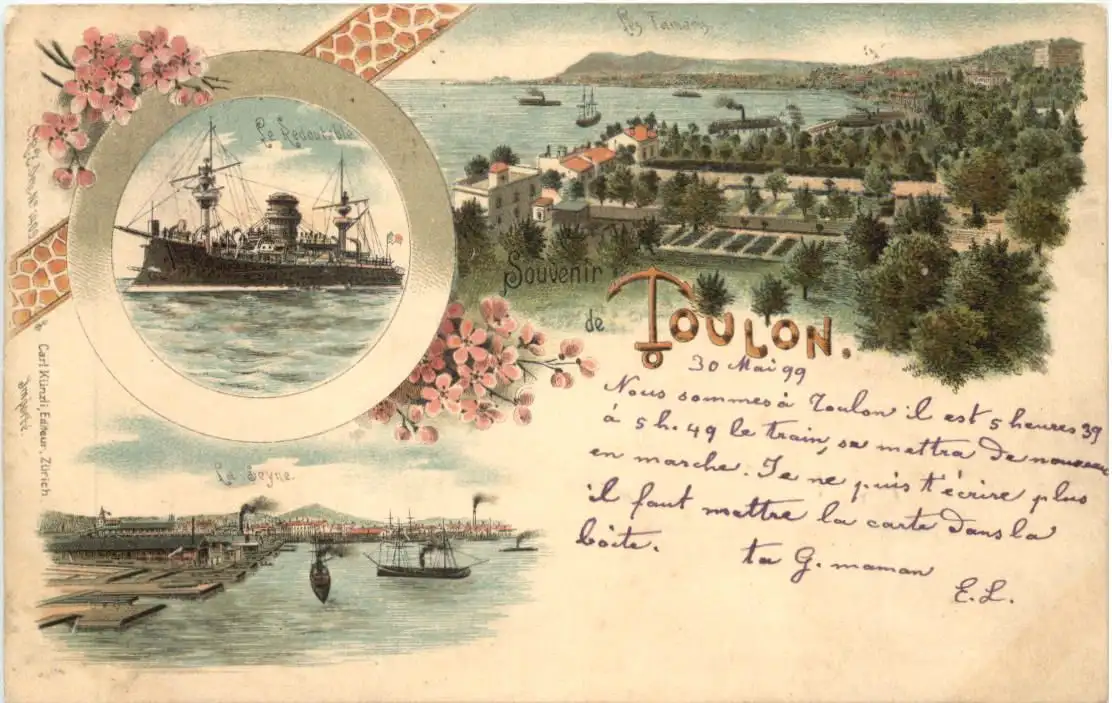 Les Tamaris
Le Redoutable
Souvenir
de
TOULON.
30 Mai 99
Nous sommes à Toulon il est 5 heures 39
à 5 h. 49 le train, se mettra de nouveau
en marche. Je ne puis t'écrire plus
il faut mettre la carte dans la
boîte.
ta G. maman
E. L.
La Seyne.
Carl Künzli, Editeur, Zürich